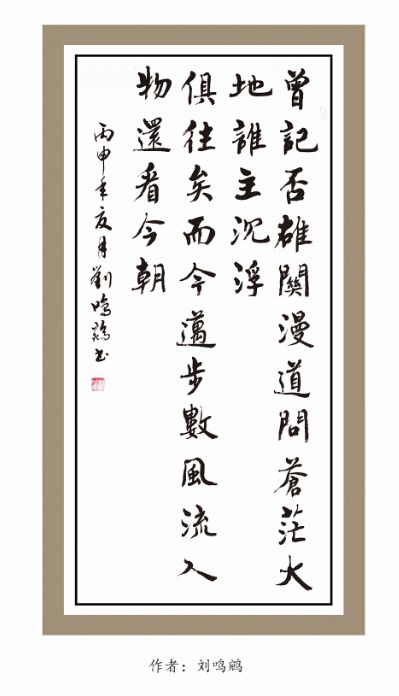 曾記否雄關漫道問蒼茫大
地誰主沉浮
俱往矣而今邁步數風流人
物還看今朝
丙申年亥月劉鳴鵷书
作者：刘鸣鹓